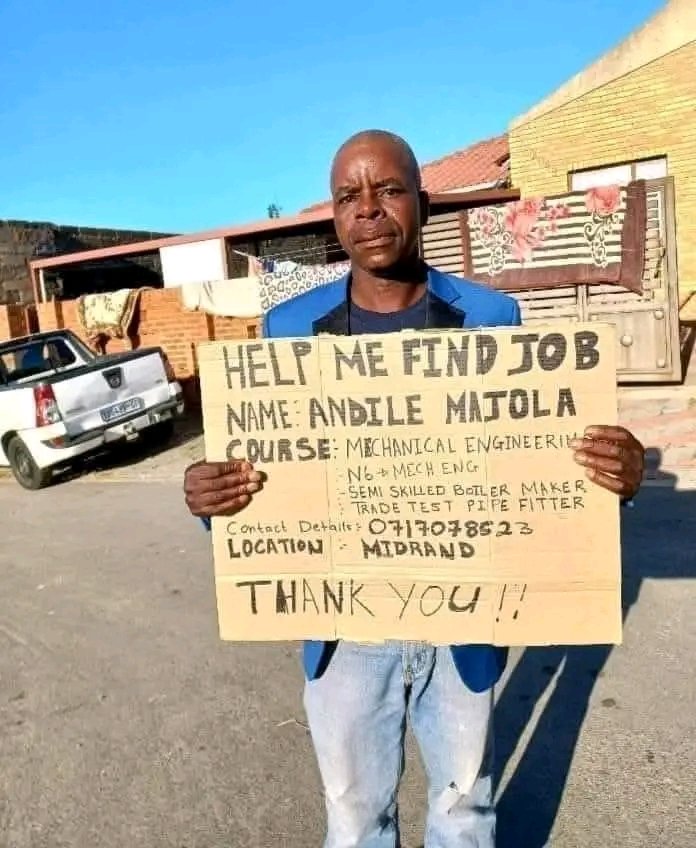 HELP ME FIND JOB
NAME: ANDILE MAJOLA
COURSE: MECHANICAL ENGINEERIN
: N6 → MECH ENG
: SEMI SKILLED BOILER MAKER
: TRADE TEST PIPE FITTER
Contact Details:- 0717078523
LOCATION :- MIDRAND
THANK YOU!!